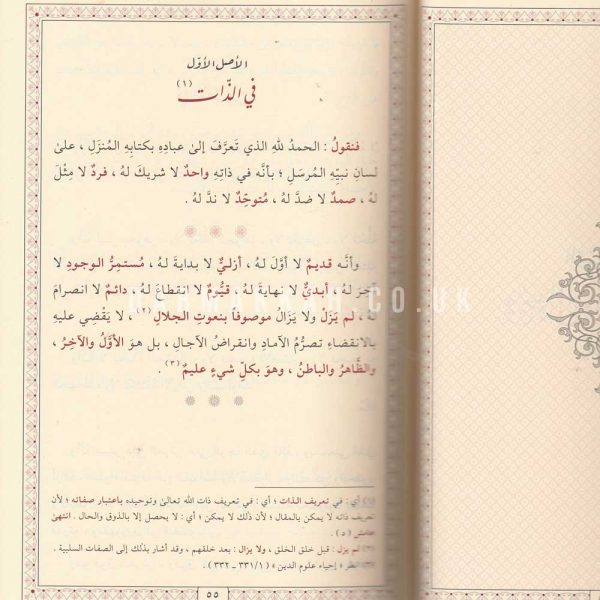 الأصل الأول
في الذّات (١)
فنقولُ : الحمدُ للهِ الذي تَعرَّفَ إلىٰ عبادِهِ بكتابِهِ المُنزَلِ ، علىٰ
لسانِ نبيِّهِ المُرسَلِ ؛ بأنَّه في ذاتِهِ واحدٌ لا شريكَ لهُ ، فردٌ لا مِثْلَ
لهُ ، صمدٌ لا ضدَّ لهُ ، مُتوحِّدٌ لا ندَّ لهُ .
وأنَّه قديمٌ لا أوَّلَ لهُ ، أزليٌّ لا بدايةَ لهُ ، مُستمِرُّ الوجودِ لا
آخرَ لهُ ، أبديٌّ لا نهايةَ لهُ ، قيُّومٌ لا انقطاعَ لهُ ، دائمٌ لا انصرامَ
لهُ ، لم يَزَلْ ولا يَزَالُ موصوفاً بنعوتِ الجلالِ (٢) ، لا يَقْضِي عليهِ
بالانقضاءِ تصرُّمُ الآمادِ وانقراضُ الآجالِ ، بل هوَ الأوَّلُ والآخِرُ ،
والظَّاهرُ والباطنُ ، وهوَ بكلِّ شيءٍ عليمٌ (٣) .
(١) أي : في تعريف الذات ؛ أي : في تعريف ذات الله تعالىٰ وتوحيده باعتبار صفاته ؛ لأن
تعريف ذاته لا يمكن بالمقال ؛ لأن ذلك لا يمكن ؛ أي : لا يحصل إلا بالذوق والحال . انتهىٰ
هامش ( د ) .
(٢) لم يزل : قبل خلق الخلق ، ولا يزال : بعد خلقهم ، وقد أشار بذلك إلى الصفات السلبية .
(٣) انظر « إحياء علوم الدين » ( ٣٣١/١ - ٣٣٢ ) .
٥٥